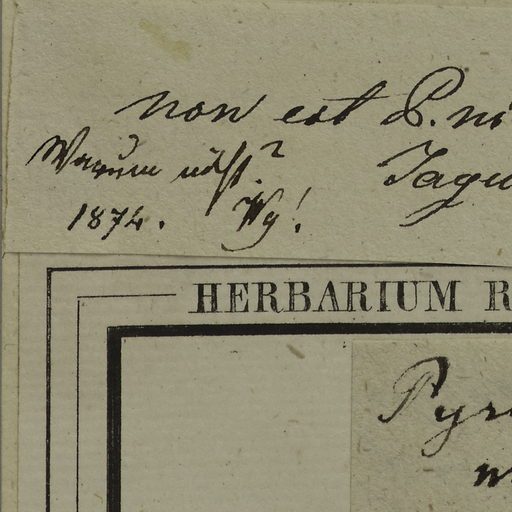 non est P. ni
Warum nicht?
Jagu
1874. Wg!
HERBARIUM R
Pyr